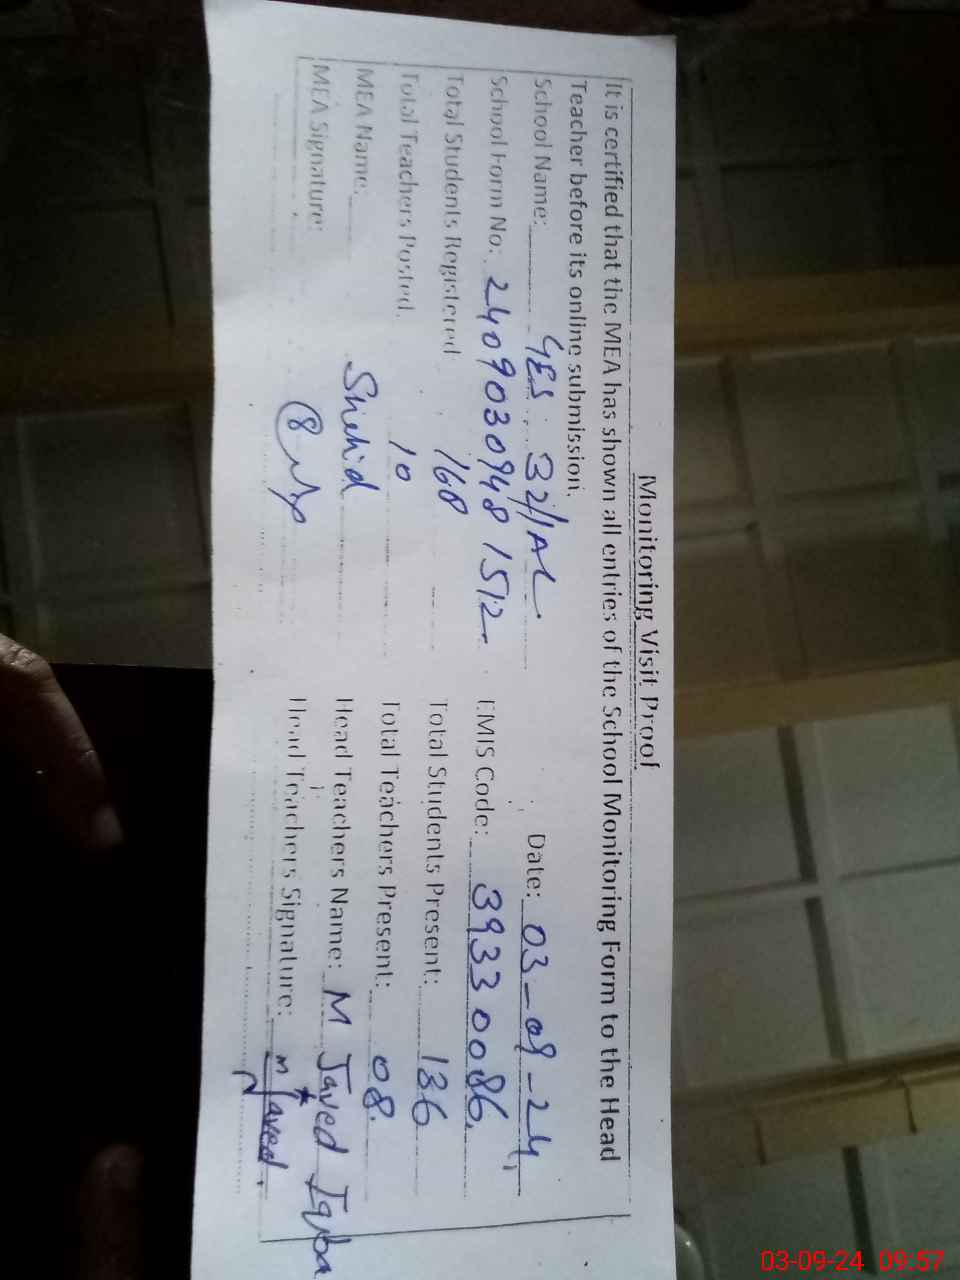 Monitoring Visit Proof
It is certified that the MEA has shown all entries of the School Monitoring Form to the Head
Teacher before its online submission.
School Name: GES 32/1AL Date: 03-09-24
School Form No: 24090309481512 EMIS Code: 39330086
Total Students Registered 168 Total Students Present: 136
Total Teachers Posted. 10 Total Teachers Present: 08.
MEA Name: Shahid Head Teachers Name: M Javed Iqba
MEA Signature: Head Teachers Signature: m Javed.
03-09-24 09:57